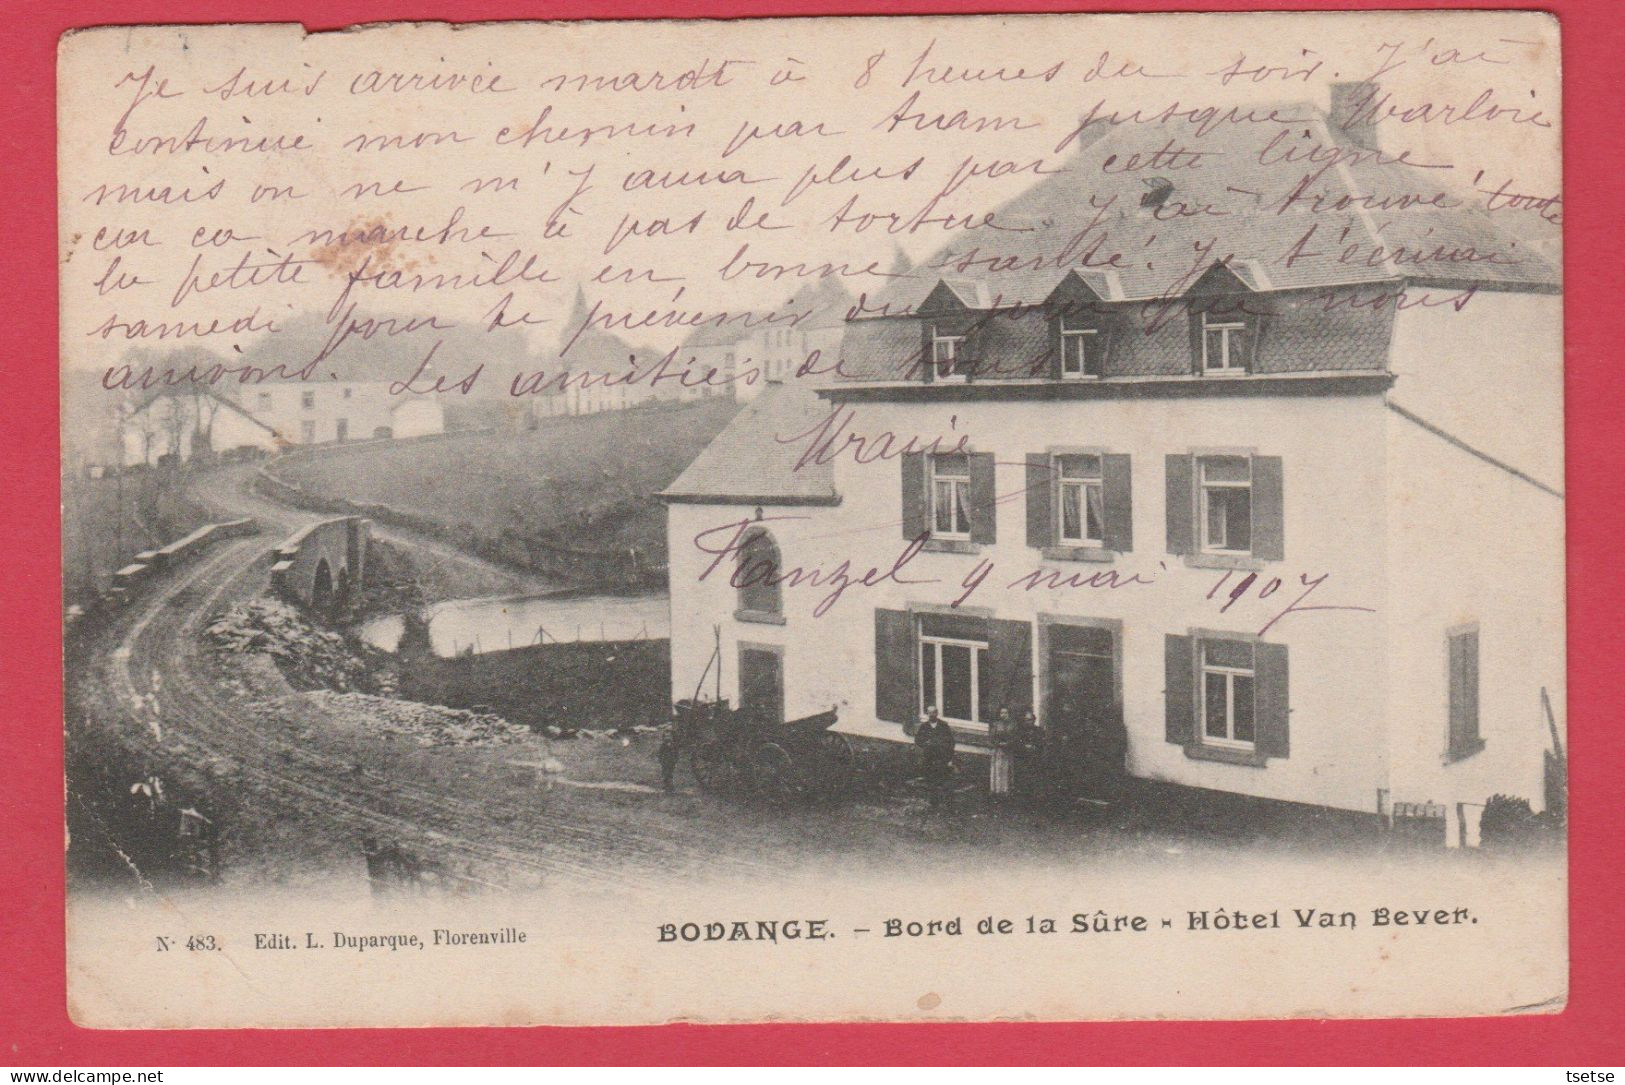 Je suis arrivée mardi à 8 heures du soir. J'ai
continué mon chemin par tram jusque Warloie
mais on ne m'y aura plus par cette ligne
car ça marche à pas de tortue. J'ai trouvé toute
la petite famille en bonne santé. Je t'écrirai
samedi pour te prévenir du jour que nous
arrivons. Les amitiés de tous
Marie
Fanzel 9 mai 1907
N· 483. Edit. L. Duparque, Florenville
BODANGE. - Bord de la Sûre - Hôtel Van Bever.
tsetse